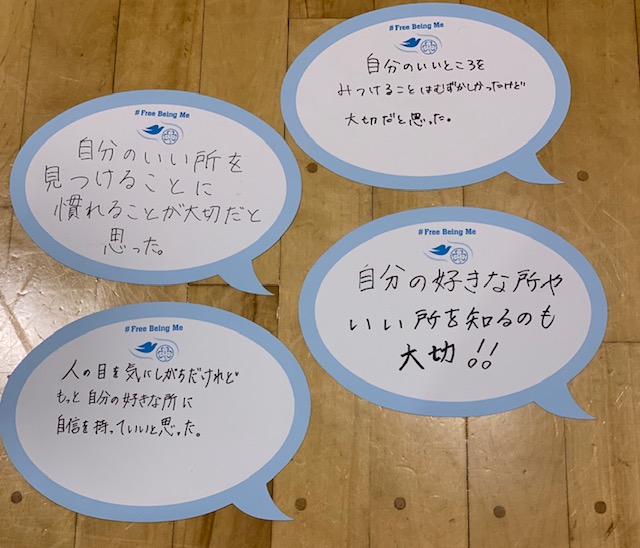 # Free Being Me
自分のいいところを
みつけることはむずかしかったけど
大切だと思った。
# Free Being Me
自分のいい所を
見つけることに
慣れることが大切だと
思った。
# Free Being Me
自分の好きな所や
いい所を知るのも
大切!!
# Free Being Me
人の目を気にしがちだけれど
もっと自分の好きな所に
自信を持っていいと思った。